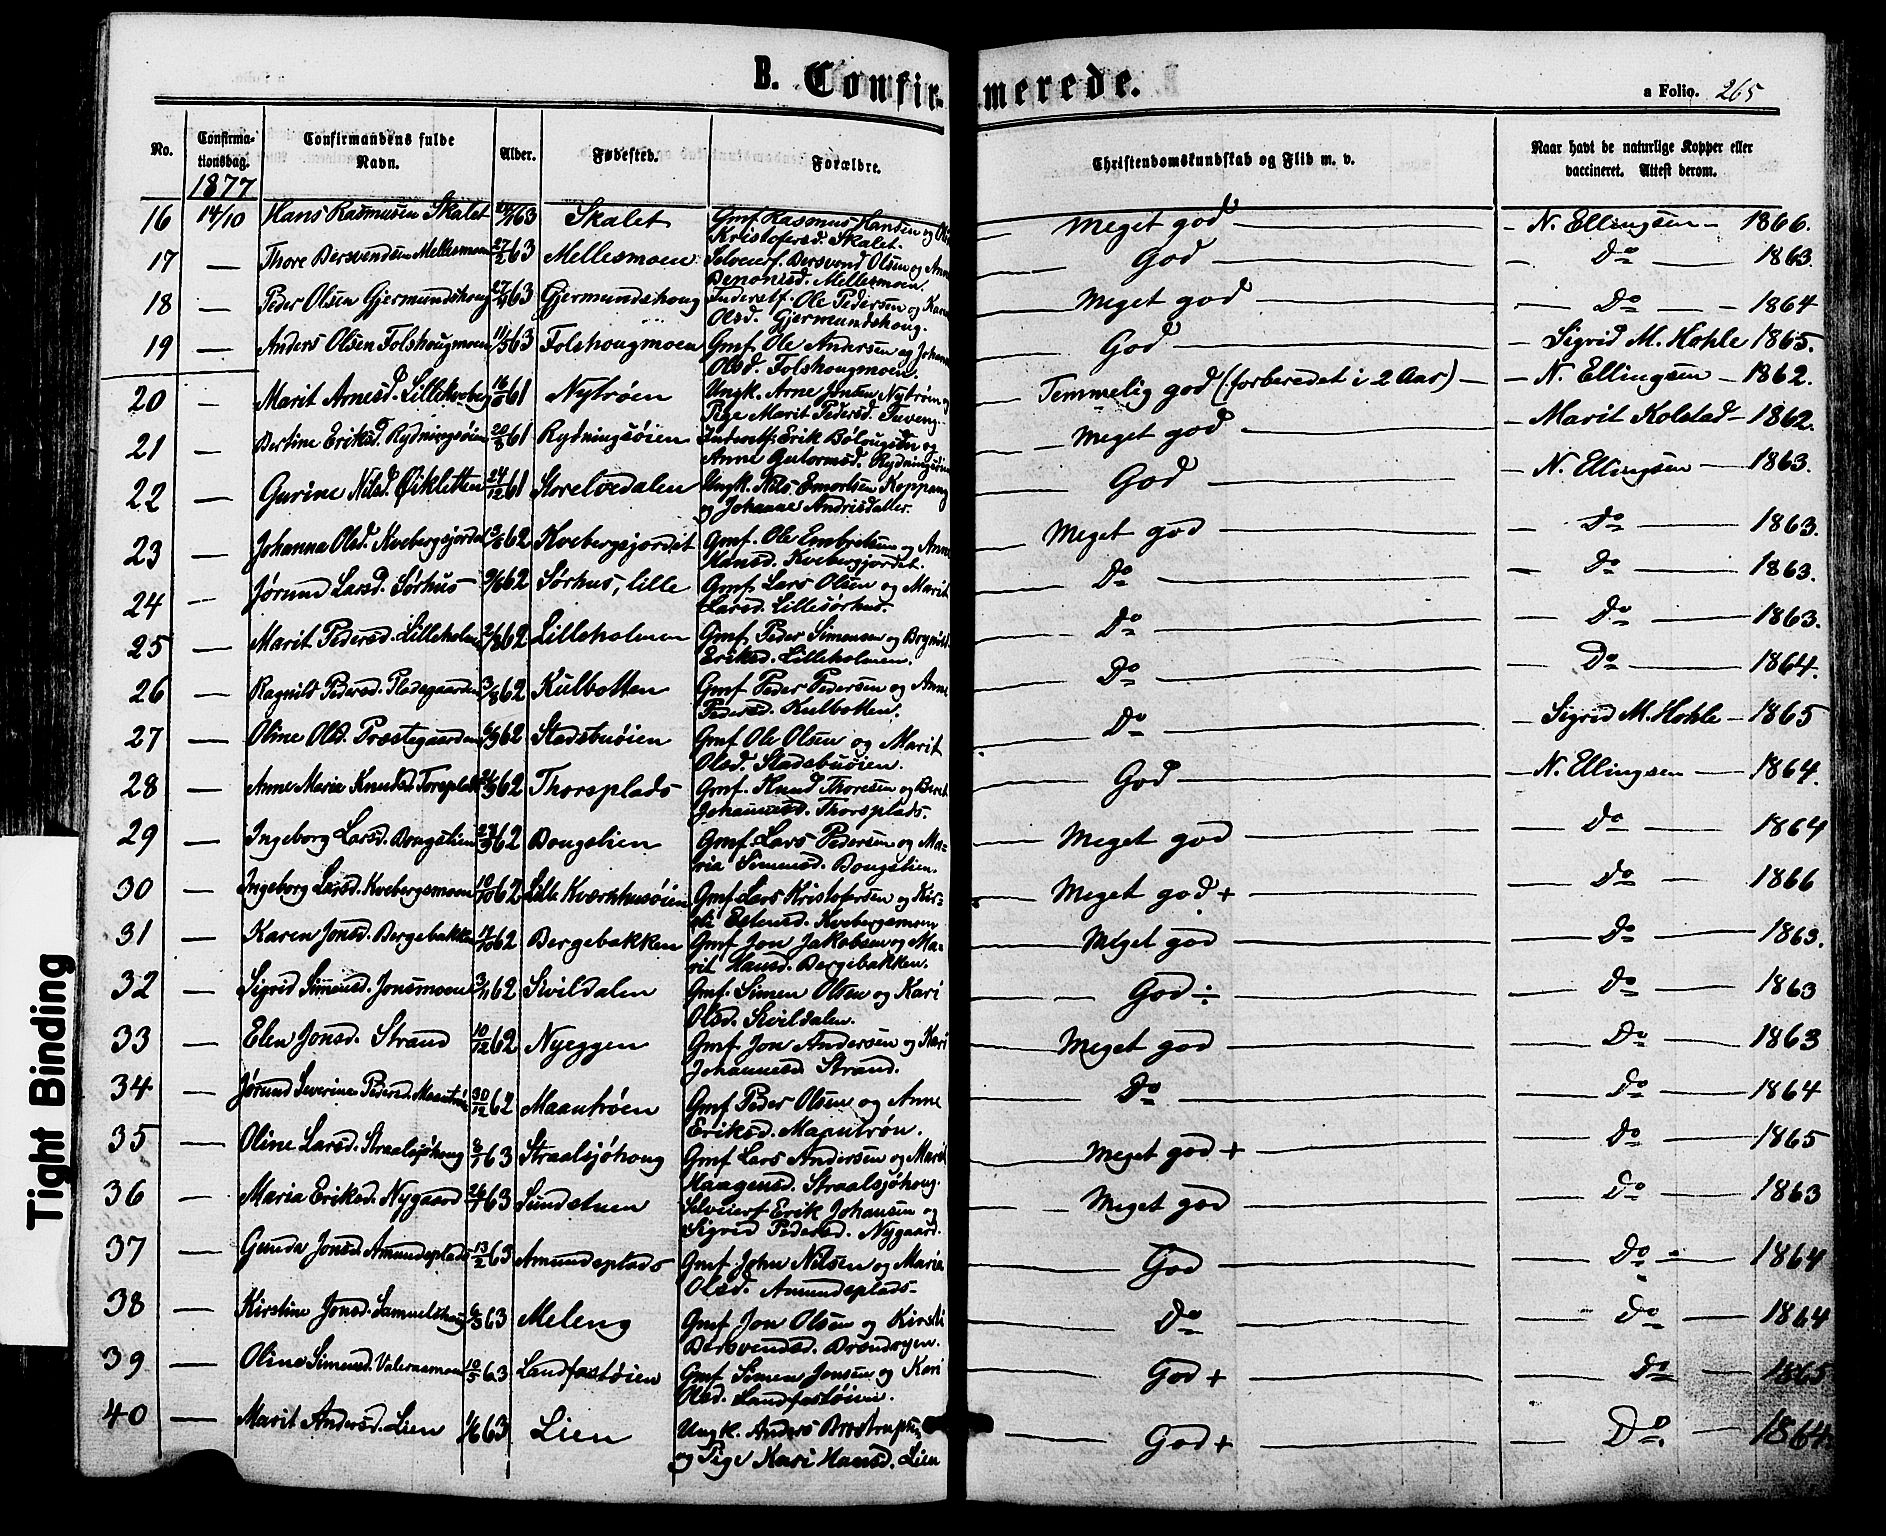 B. Confirmerede.
a Folio. 265
No. Confirmationsdag. Confirmandens fulde Navn. Alder. Fødested. Forældre. Christendomskundskab og Flid m. v. Naar havt de naturlige Kopper eller vaccineret. Attest derom.
1877
16 14/10 Hans Rasmusen Skalet 63 Skalet Gmf Rasmus Hansen og Kristofersd. Skalet. Meget god N. Ellingsen 1866.
17 — Thore Bersvendsen Mellesmoen 27/2 63 Mellesmoen Selveierf. Bersvend Olsen og Anne Benonisd. Mellesmoen. God Do 1863.
18 — Peder Olsen Gjermundshoug 63 Gjermundshoug Inderstf. Ole Pedersen og Karen Olsd. Gjermundshoug. Meget god Do 1864
19 — Anders Olsen Folshougmoen 11/5 63 Folshougmoen Gmf. Ole Andersen og Johanne Olsd. Folshougmoen. God Sigrid M. Hohle 1865.
20 — Marit Arnesd. Lillekveberg 61 Nytrøen Ungk. Arne Jonsen Nytrøen og Pige Marit Pedersd. Tuveng. Temmelig god (forberedet i 2 Aar) N. Ellingsen 1862.
21 — Bertine Eriksd. Rydningsøien 61 Rydningsøien Inderstf. Erik og Anne Gutormsd. Rydningsøien Meget god Marit Kolstad 1862.
22 — Gurine Nilsd. Øikletten 24/12 61 Storelvedalen Ungk. Nils Koppang og Johanne Andrisdatter. God N. Ellingsen 1863.
23 — Johanna Olsd. Kvebergsjordet 62 Kvebergsjordet Gmf. Ole Embretsen og Anne Hansd. Kvebergjordet. Meget god Do 1863.
24 — Jørun Larsd. Sørhus 62 Sørhus, lille Gmf. Lars Olsen og Marit Larsd. Lillesørhus. Do Do 1863.
25 — Marit Pedersd. Lilleholmen 62 Lilleholmen Gmf Peder Simensen og Eriksd. Lilleholmen. Do Do 1863.
26 — Ragnild Pedersd. 3/8 62 Kulbotten Gmf Peder Pedersen og Anne Pedersd. Kulbotten. Do Do 1864.
27 — Oline Olsd. Præstegaarden 62 Stadsbuøien Gmf Ole Olsen og Marit Olsd. Stadsbuøien. Do Sigrid M. Hohle 1865
28 — Anne Maria Knudsd. Torsplads 62 Thorsplads Gmf. Knud Thoresen og Beret Johannesd. Thorsplads. God N. Ellingsen 1864.
29 — Ingeborg Larsd. Bougslien 62 Bougslien Gmf. Lars Pedersen og Maria Simensd. Bougslien. Meget god Do 1864
30 — Ingeborg Larsd. Kvebergsmoen 10/10 62 Lille Kværnhusøien Gmf Lars Kristofersen og Kirsti Estensd. Kvebergsmoen Meget god + Do 1866
31 — Karen Jonsd. Bergebakken 62 Bergebakken Gmf Jon Jakobsen og Marit Hansd. Bergebakken. Meget god Do 1863.
32 — Sigrid Simensd. Jonsmoen 3/11 62 Sivildalen Gmf. Simen Olsen og Kari Olsd. Sivildalen. God ÷ Do 1863
33 — Elen Jonsd. Strand 10/12 62 Nyeggen Gmf Jon Andersen og Kari Johannesd Strand. Meget god Do 1863
34 — Jørund Severine Pedersd. Maantrøen 30/12 62 Maantrøen Gmf Peder Olsen og Anne Eriksd. Maantrøn. Do Do 1864
35 — Oline Larsd. Straalsjøhoug 63 Straalsjøhoug Gmf Lars Andersen og Marit Haagensd. Straalsjøhoug. Meget god + Do 1865
36 — Maria Eriksd. Nygaard 63 Sundstuen Selveierf Erik Johansen og Sigrid Pedersd. Nygaard. Meget god Do 1863
37 — Gunda Jonsd. Amundsplads 13/2 63 Amundsplads Gmf John Nilsen og Maria Olsd. Amundsplads. God Do 1864
38 — Kirstine Jonsd. Samuelshoug 63 Meleng Gmf Jon Olsen og Kirsti Bersvendsd. Do Do 1864
39 — Oline Simensd. Valeraasmoen 10/5 63 Landfastøien Gmf Simen Jonsen og Kari Olsd. Landfastøien. God + Do 1865
40 — Marit Andersd. Lien 1/6 63 Lien Ungk. Anders og Pige Kari Hansd. Lien God + Do. 1864.
Tight Binding